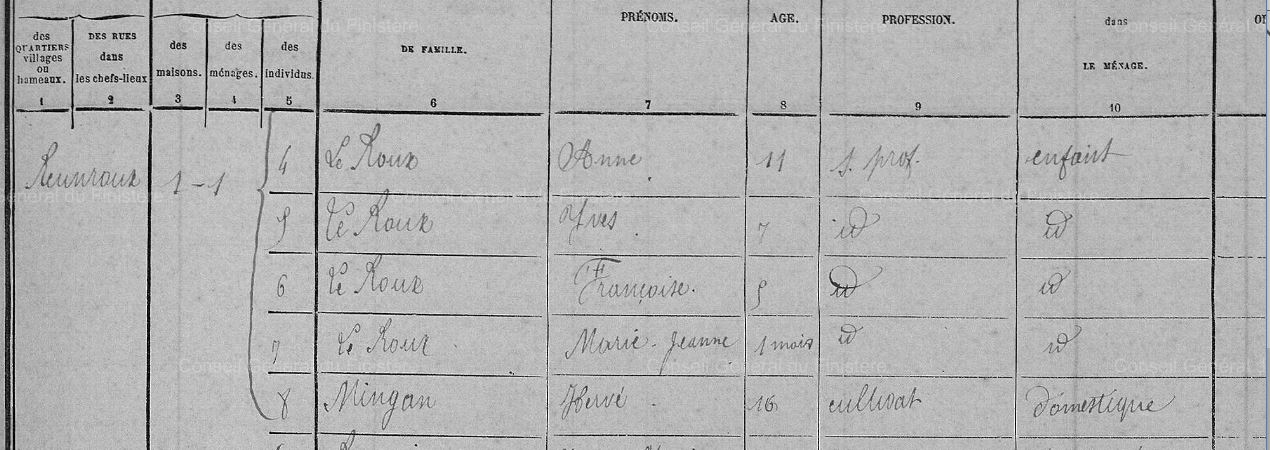 PRÉNOMS. AGE. PROFESSION. dans
des QUARTIERS villages ou hameaux. DES RUES dans les chefs-lieux des maisons. des ménages. des individus. DE FAMILLE. LE MÉNAGE.
1 2 3 4 5 6 7 8 9 10
1 - 1 4 Le Roux Anne 11 s. prof. enfant
5 Le Roux Yves 7 id id
6 Le Roux Françoise. 5 id id
7 Le Roux Marie-Jeanne 1 mois id id
8 Mingan Hervé 16 cultivat domestique
Conseil Général du Finistère